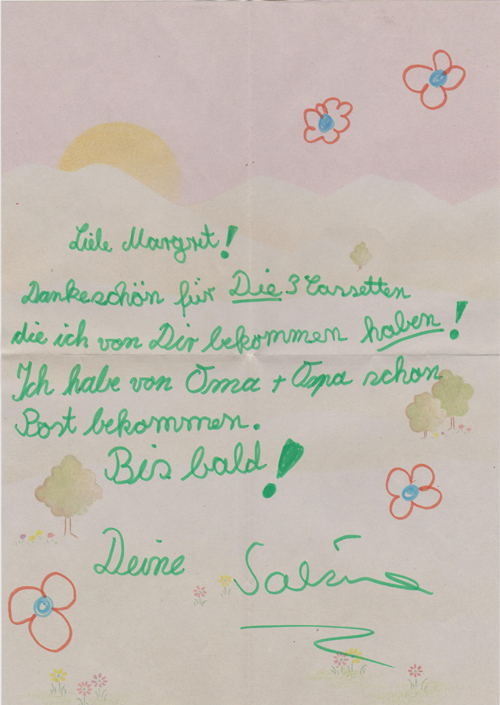 Liebe Margret!
Dankeschön für Die 3 Cassetten
die ich von Dir bekommen haben!
Ich habe von Oma + Opa schon
Post bekommen.
Bis bald!
Deine Sabine